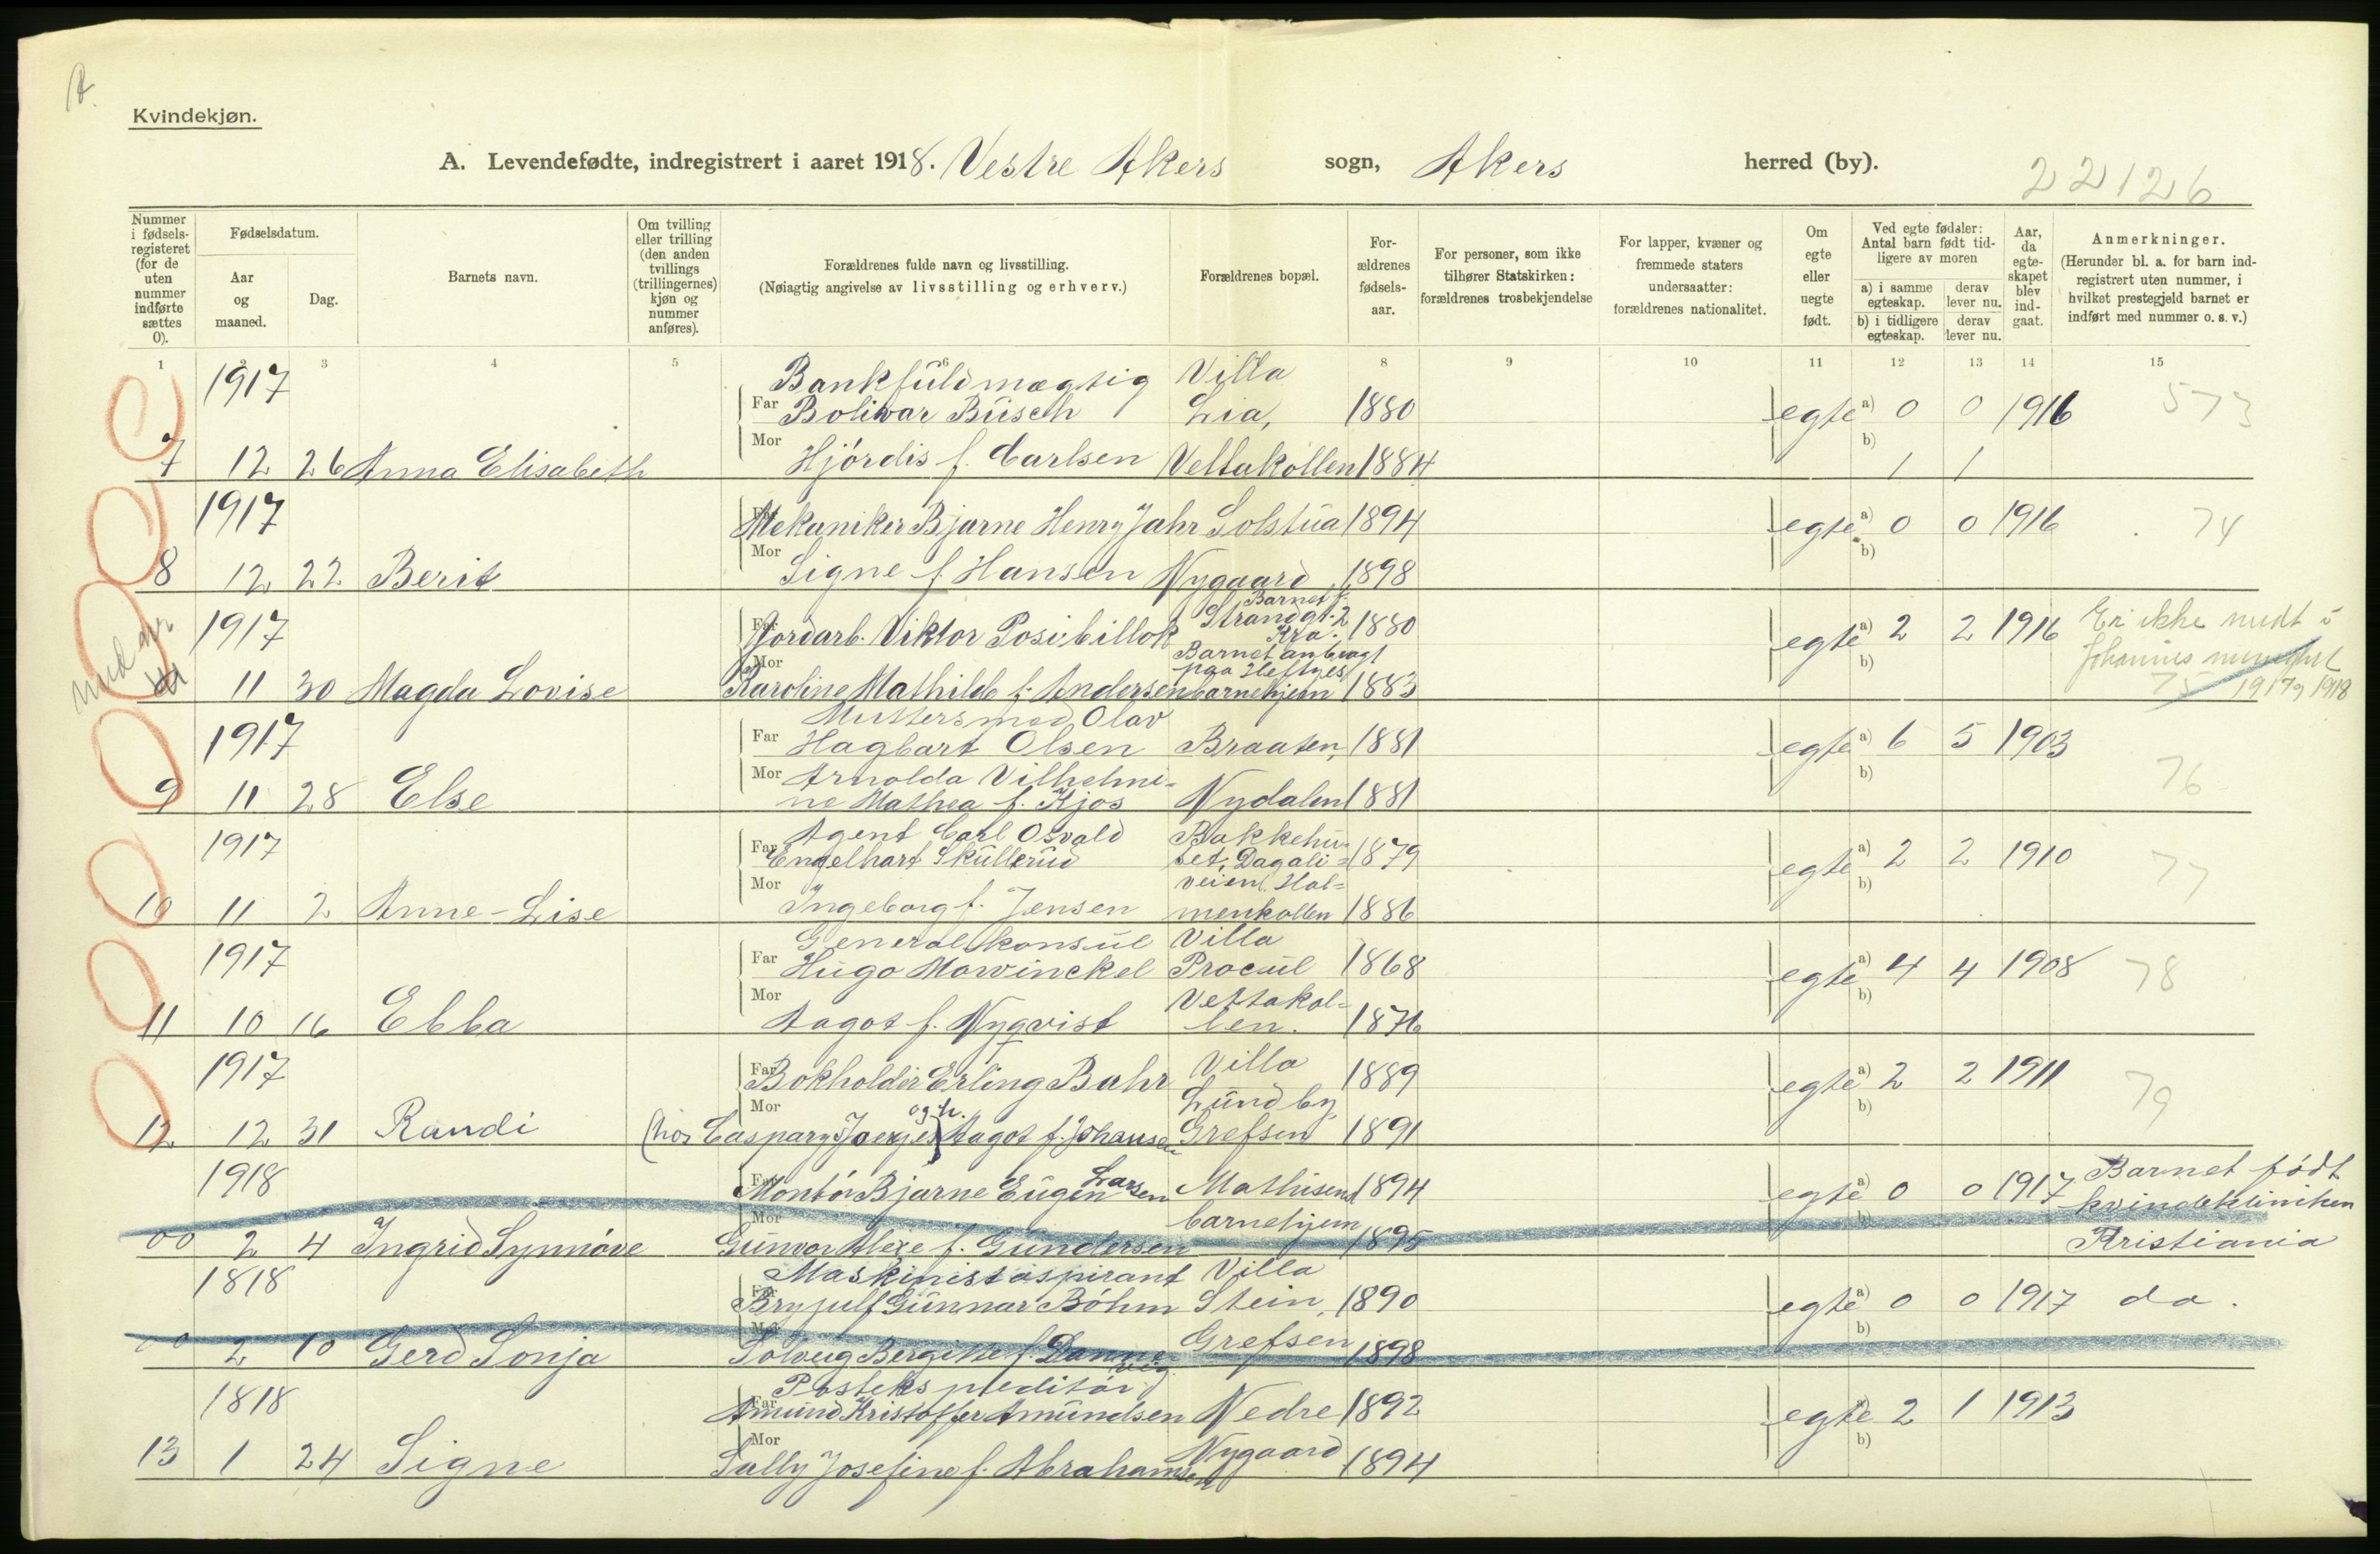 Kvindekjøn.
A. Levendefødte, indregistrert i aaret 1918. Vestre Akers sogn, Akers herred (by).
22126
Nummer i fødselsregisteret (for de uten nummer indførte sættes 0).
Fødselsdatum.
Aar og maaned.
Dag.
Barnets navn.
Om tvilling eller trilling (den anden tvillings (trillingernes) kjøn og nummer anføres).
Forældrenes fulde navn og livsstilling.
(Nøiagtig angivelse av livsstilling og erhverv.)
Forældrenes bopæl.
Forældrenes fødselsaar.
For personer, som ikke tilhører Statskirken: forældrenes trosbekjendelse
For lapper, kvæner og fremmede staters undersaatter: forældrenes nationalitet.
Om egte eller uegte født.
Ved egte fødsler: Antal barn født tidligere av moren
a) i samme egteskap. derav lever nu.
b) i tidligere egteskap. derav lever nu.
Aar, da egteskapet blev indgaat.
Anmerkninger.
(Herunder bl. a. for barn indregistrert uten nummer, i hvilket prestegjeld barnet er indført med nummer o. s. v.)
1 2 3 4 5 6 8 9 10 11 12 13 14 15
1917 Bankfuldmægtig Villa
Far Bolivar Büsch Lia, 1880 egte a) 0 0 1916 573
7 12 26 Anna Elisabeth Mor Hjördis f. Carlsen Vettakollen 1884 b) 1 1
1917 Far Mekaniker Bjarne Henry Jahr Solstua 1894 egte a) 0 0 1916 74
8 12 22 Berit Mor Signe f. Hansen Nygaard 1898 b)
1917 Far Jordarb. Viktor Posibillok Barnet f. Strandgt. 2 Kra. 1880 egte a) 2 2 1916 Er ikke
11 30 Magda Lovise Mor Karoline Mathilde f. Andersen Barnet anbragt paa Heftyes barnehjem 1883 b) 75 1917 1918
1917 Mutters mod. Olav
Far Hagbart Olsen Braaten, 1881 egte a) 6 5 1903
9 11 28 Else Mor Arnolda Vilhelmine Mathea f. Kjos Nydalen 1881 b) 76
1917 Agent Carl Osvald Bakkehu-
Far Engelhart Skullerud set, Dagali- 1879 egte a) 2 2 1910 77
10 11 2 Anne-Lise Mor Ingeborg f. Jensen veien, Holmenkollen 1886 b)
1917 Generalkonsul Villa
Far Hugo Mowinckel Procul 1868 egte a) 4 4 1908 78
11 10 16 Ebba Mor Aagot f. Nyqvist Vettakollen. 1876 b)
1917 Far Bokholder Erling Bahr Villa 1889 egte a) 2 2 1911 79
12 12 31 Randi (hos Caspary Mor Aagot f. Johansen Lundby, Grefsen 1891 b)
1918 Far Montör Bjarne Eugen Larsen Mathisens 1894 egte a) 0 0 1917 Barnet födt
00 2 4 Ingrid Synnöve Mor Gunvor Alexe f. Gundersen barnehjem 1895 b) kvindekliniken Kristiania
1818 Maskinistaspirant Villa
Far Brynjulf Gunnar Böhm Stein, 1890 egte a) 0 0 1917 do.
00 2 10 Gerd Sonja Mor Solveig Bergitte f. Dannevig Grefsen 1898 b)
1818 Postekspeditör
Far Amund Kristoffer Amundsen Nedre 1892 egte a) 2 1 1913
13 1 24 Signe Mor Sally Josefine f. Abrahamsen Nygaard 1894 b)